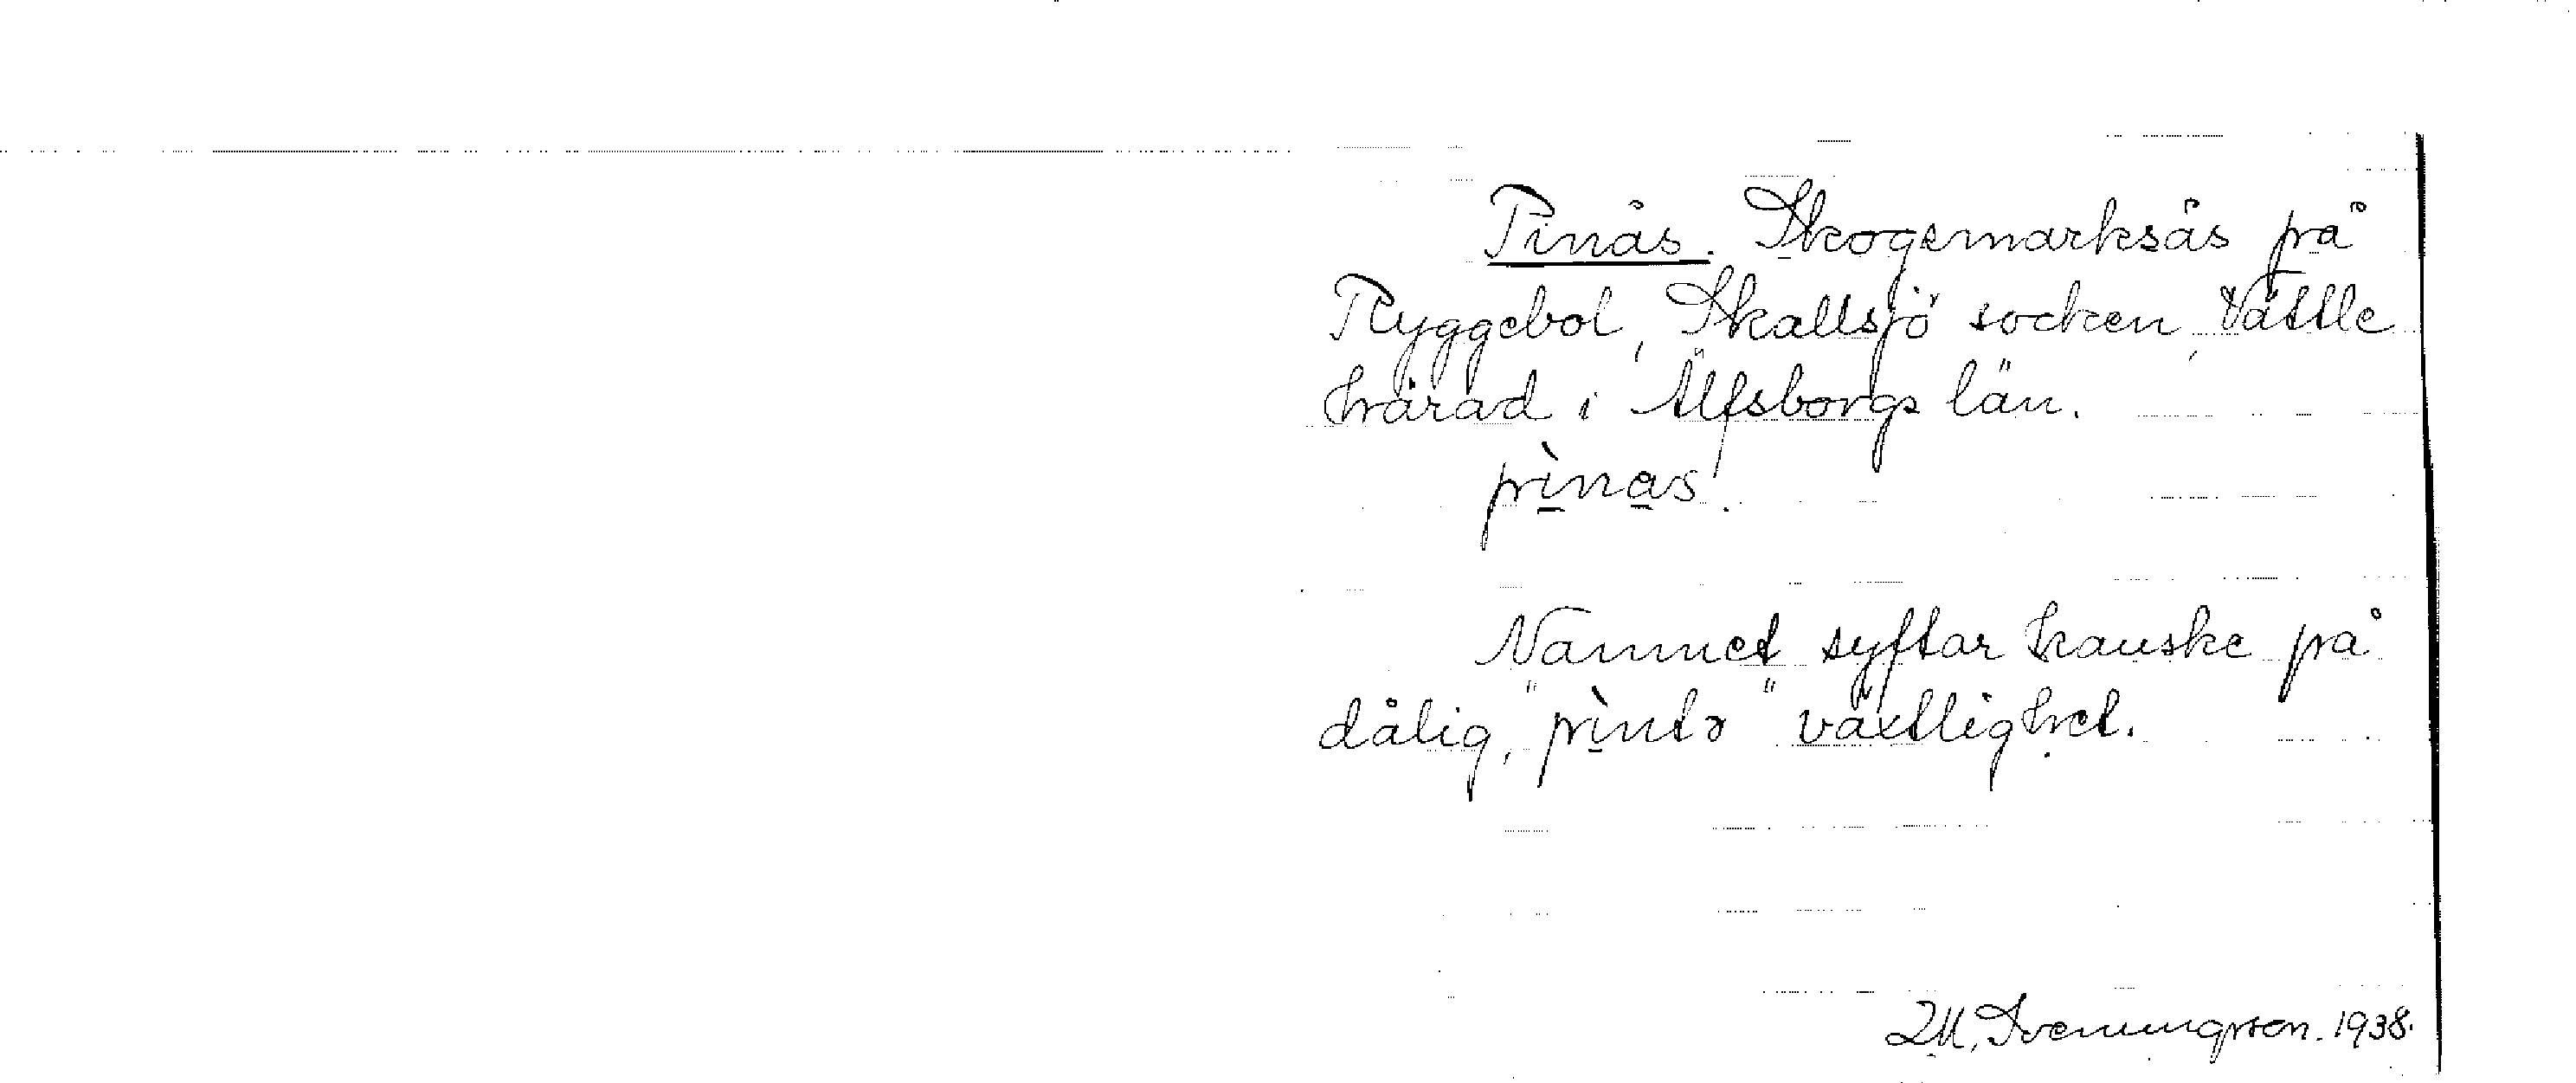 Pinås. Skogsmarksås på
Ryggebol, Skallsjö socken, Vättle
härad i Älfsborgs län.
pìnas.
Namnet syftar kanske på
dålig, "pìntə" växtlighet.
D.M. Svenningsson. 1938.